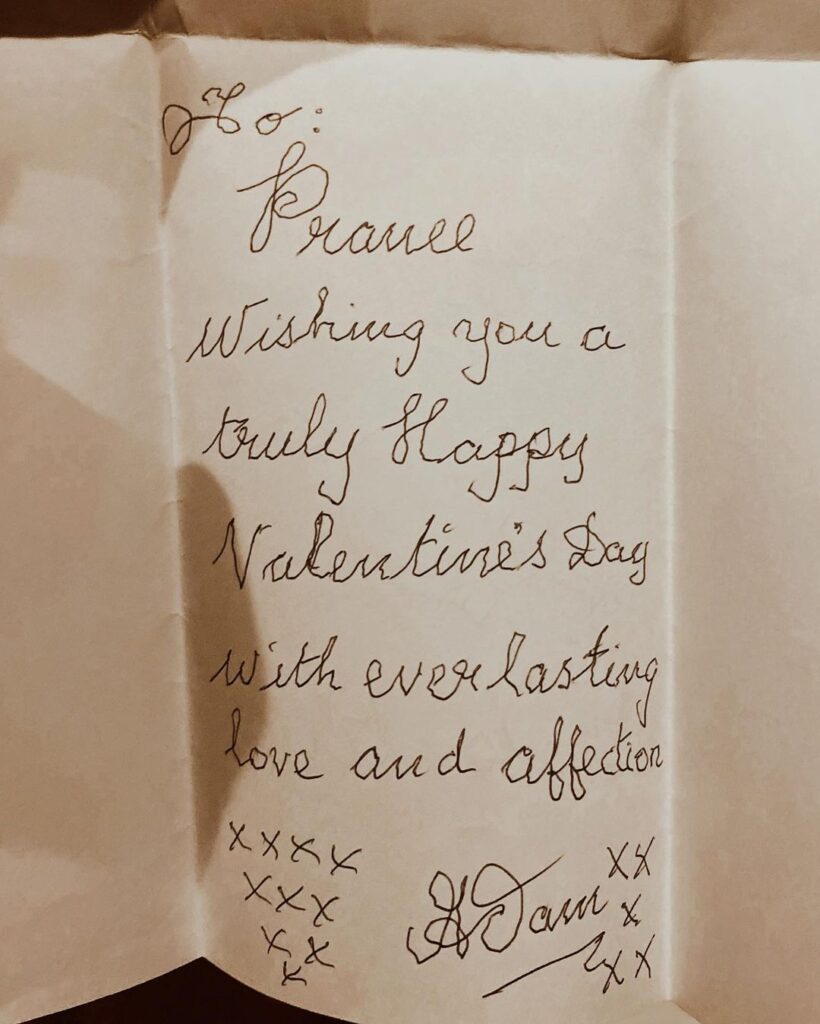 To:
Pranee
Wishing you a
truly Happy
Valentine's Day
with everlasting
love and affection
xxxx
xxx
xx
x
Adam
xx
x
xx